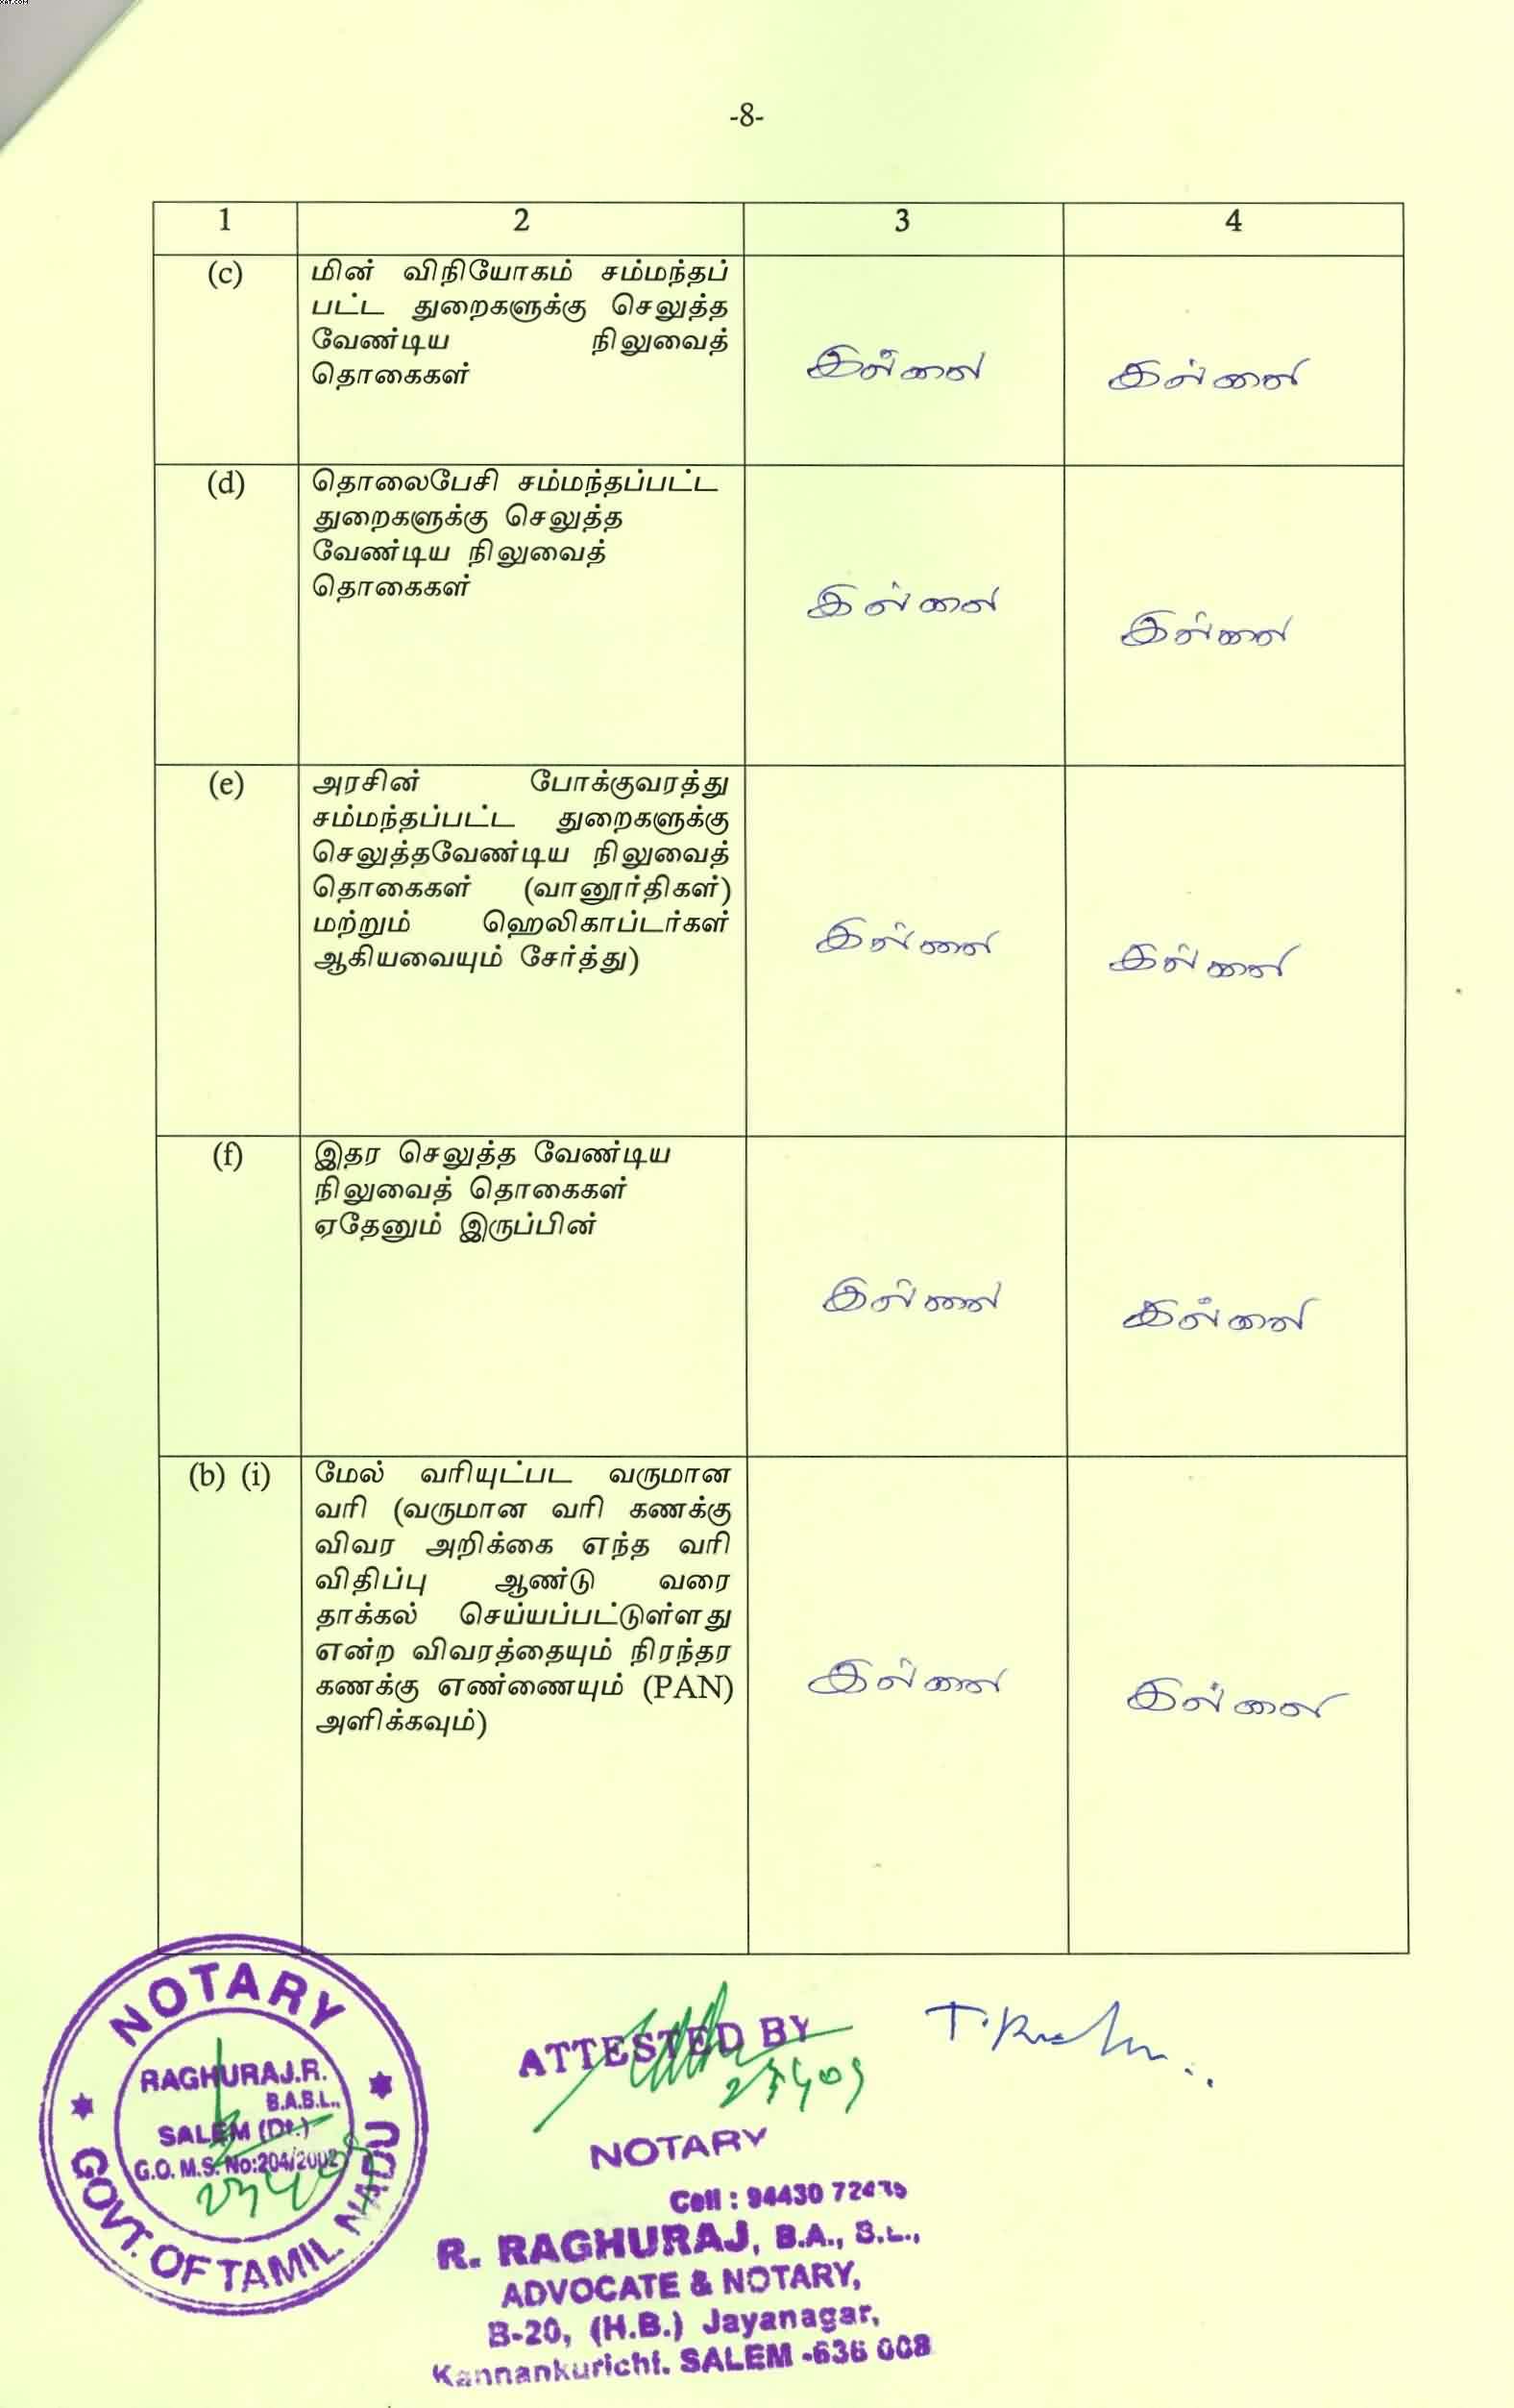 -8-
1 2 3 4
(c) மின் விநியோகம் சம்மந்தப்
பட்ட துறைகளுக்கு செலுத்த
வேண்டிய நிலுவைத்
தொகைகள்
இல்லை இல்லை
(d) தொலைபேசி சம்மந்தப்பட்ட
துறைகளுக்கு செலுத்த
வேண்டிய நிலுவைத்
தொகைகள்
இல்லை இல்லை
(e) அரசின் போக்குவரத்து
சம்மந்தப்பட்ட துறைகளுக்கு
செலுத்தவேண்டிய நிலுவைத்
தொகைகள் (வானூர்திகள்)
மற்றும் ஹெலிகாப்டர்கள்
ஆகியவையும் சேர்த்து)
இல்லை இல்லை
(f) இதர செலுத்த வேண்டிய
நிலுவைத் தொகைகள்
ஏதேனும் இருப்பின்
இல்லை இல்லை
(b) (i) மேல் வரியுட்பட வருமான
வரி (வருமான வரி கணக்கு
விவர அறிக்கை எந்த வரி
விதிப்பு ஆண்டு வரை
தாக்கல் செய்யப்பட்டுள்ளது
என்ற விவரத்தையும் நிரந்தர
கணக்கு எண்ணையும் (PAN)
அளிக்கவும்)
இல்லை இல்லை
NOTARY
RAGHURAJ.R.
B.A.B.L.,
SALEM (Dt.)
G.O. M.S. No:204/2002
GOVT. OF TAMIL NADU
ATTESTED BY
NOTARY
Cell : 94430
R. RAGHURAJ, B.A., B.L.,
ADVOCATE & NOTARY,
B-20, (H.B.) Jayanagar,
Kannankurichi. SALEM -636 008